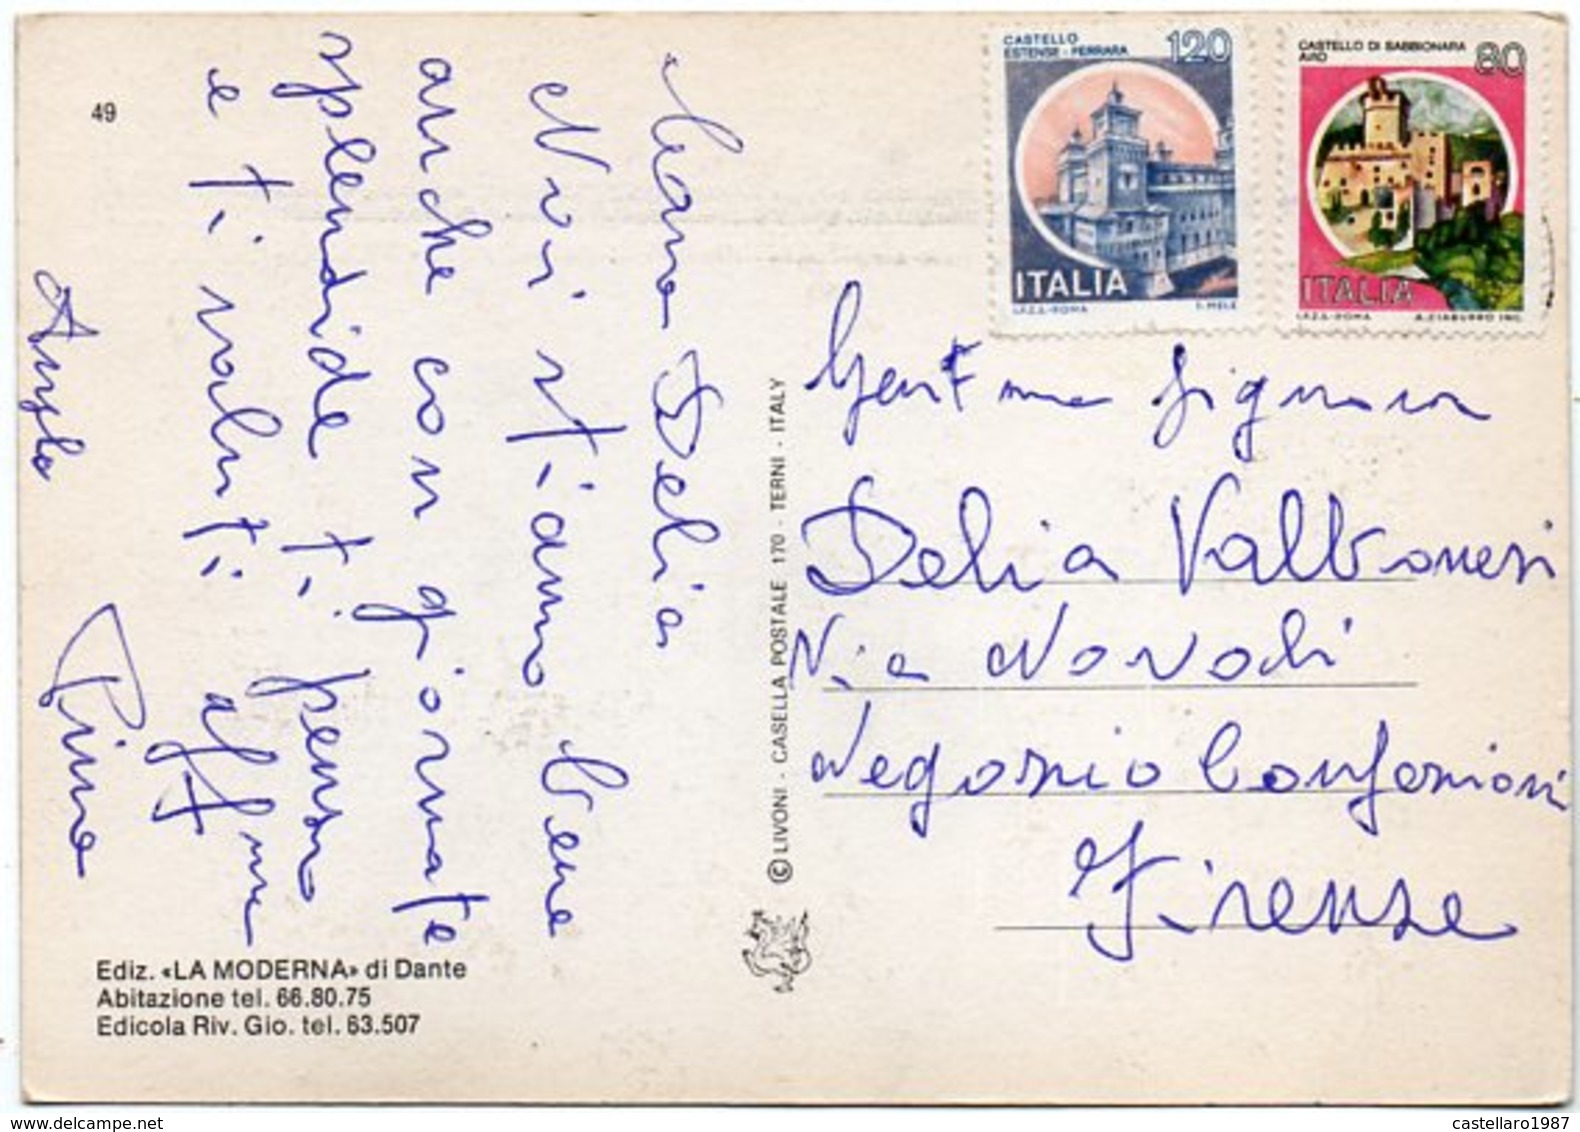 49
Cara Delia
Noi stiamo bene
anche con giornate
splendide ti penso
e ti saluti aff.me
Angela Pina
CASTELLO
ESTENSE - FERRARA
120
ITALIA
I.P.Z.S.-ROMA
E. MELE
CASTELLO DI SABBIONARA
AVIO
80
ITALIA
I.P.Z.S.-ROMA
A. CIABURRO INC.
Gent.ma Signora
Delia Valbonesi
Via Novoli
Negozio Confezioni
Firenze
© LIVONI - CASELLA POSTALE 170 - TERNI - ITALY
Ediz. «LA MODERNA» di Dante
Abitazione tel. 66.80.75
Edicola Riv. Gio. tel. 63.507
www.delcampe.net
castellaro1987